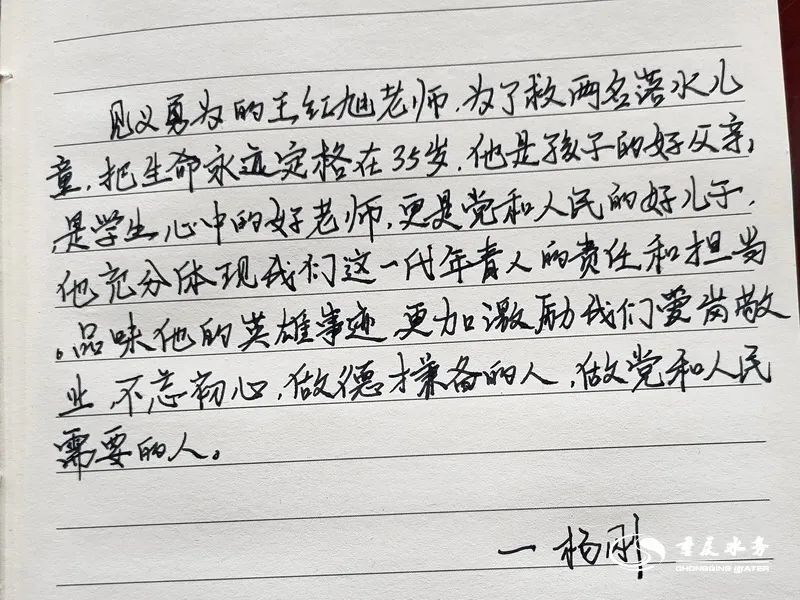 见义勇为的王红旭老师，为了救两名落水儿
童，把生命永远定格在35岁，他是孩子的好父亲，
是学生心中的好老师，更是党和人民的好儿子，
他充分体现我们这一代年青人的责任和担当
。品味他的英雄事迹，更加激励我们爱岗敬
业，不忘初心，做德才兼备的人，做党和人民
需要的人。
一杨刚
重庆水务
CHONGQING WATER